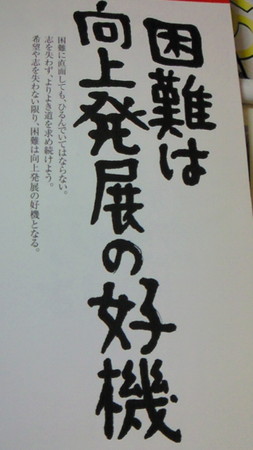 困難は
向上発展の好機
困難に直面しても、ひるんでいてはならない。
志を失わず、よりよき道を求め続けよう。
希望や志を失わない限り、困難は向上発展の好機となる。